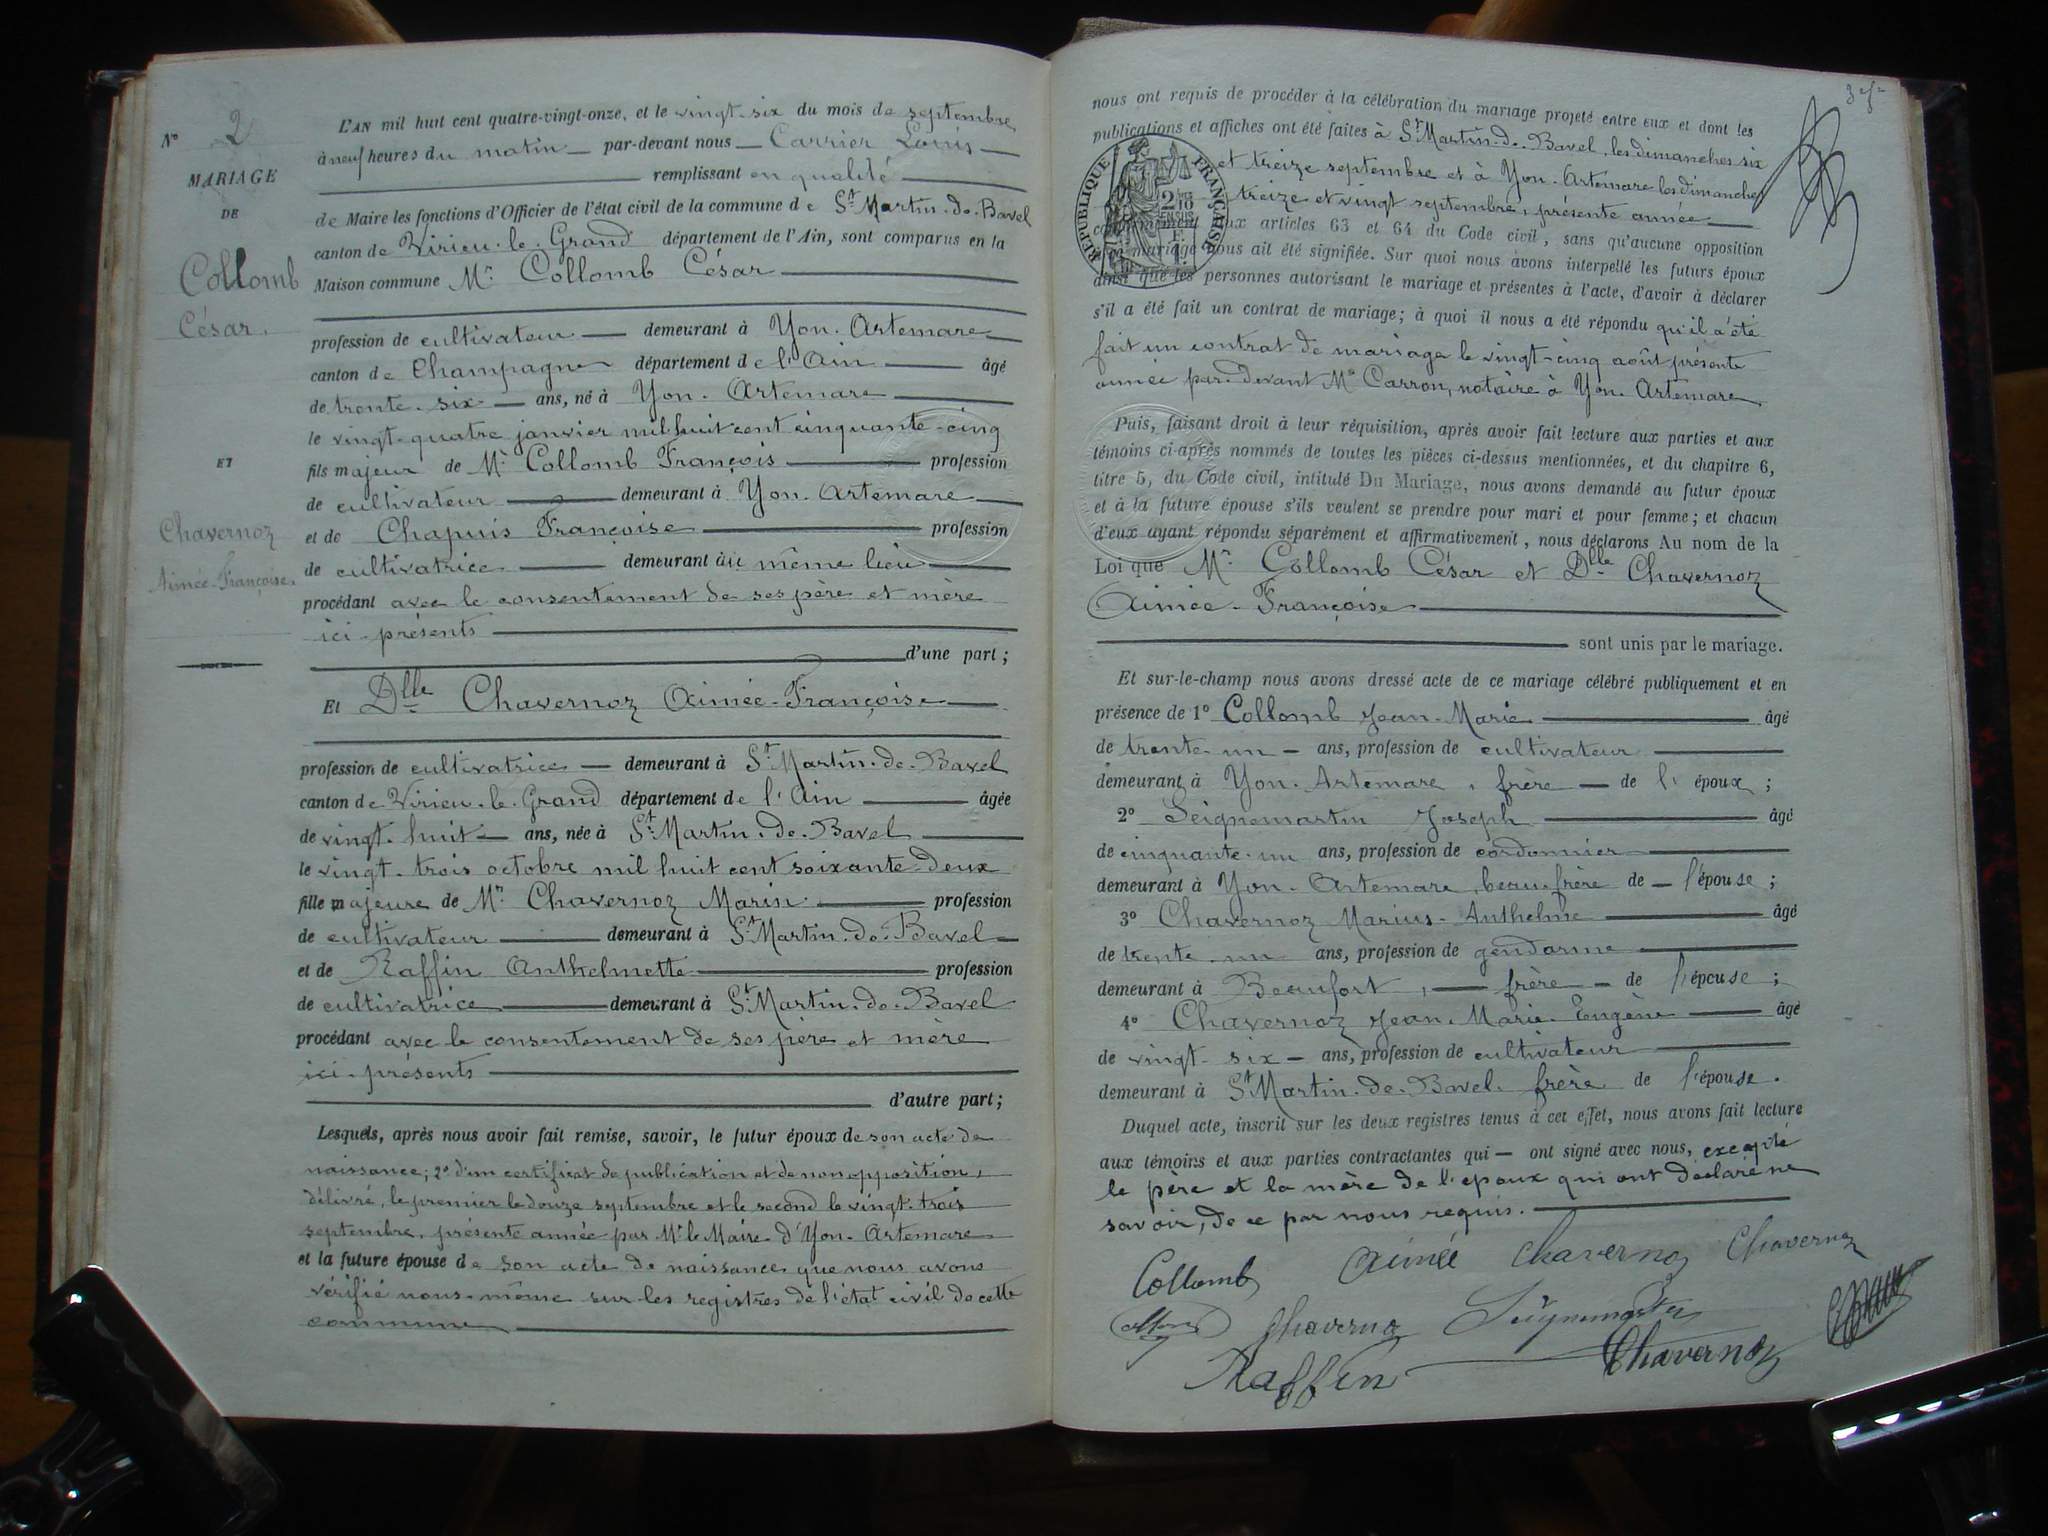 N° 2
MARIAGE
DE
Collomb
César.
ET
Chavernoz
Aimée-Françoise.
L'AN mil huit cent quatre-vingt-onze, et le vingt-six du mois de septembre
à neuf heures du matin — par-devant nous — Carrier Louis —
remplissant en qualité
de Maire les fonctions d'Officier de l'état civil de la commune de St Martin-de-Bavel
canton de Virieu-le-Grand département de l'Ain, sont comparus en la
Maison commune Mr Collomb César
profession de cultivateur — demeurant à Yon-Artemare
canton de Champagne département de l'Ain — âgé
de trente-six — ans, né à Yon-Artemare
le vingt-quatre janvier mil huit cent cinquante-cinq
fils majeur de Mr Collomb François — profession
de cultivateur — demeurant à Yon-Artemare
et de Chapuis Françoise — profession
de cultivatrice — demeurant au même lieu
procédant avec le consentement de ses père et mère
ici présents
d'une part;
Et Dlle Chavernoz Aimée-Françoise
profession de cultivatrice — demeurant à St Martin-de-Bavel
canton de Virieu-le-Grand département de l'Ain — âgée
de vingt-huit — ans, née à St Martin-de-Bavel
le vingt-trois octobre mil huit cent soixante-deux
fille majeure de Mr Chavernoz Marin — profession
de cultivateur — demeurant à St Martin-de-Bavel
et de Raffin Anthelmette — profession
de cultivatrice — demeurant à St Martin-de-Bavel
procédant avec le consentement de ses père et mère
ici présents
d'autre part;
Lesquels, après nous avoir fait remise, savoir, le futur époux de son acte de
naissance; 2° d'un certificat de publication et de non opposition,
délivré, le premier le douze septembre et le second le vingt-trois
septembre, présente année par Mr le Maire d'Yon-Artemare
et la future épouse de son acte de naissance que nous avons
vérifié nous-même sur les registres de l'état civil de cette
commune
nous ont requis de procéder à la célébration du mariage projeté entre eux et dont les
publications et affiches ont été faites à St Martin-de-Bavel, les dimanches six
et treize septembre et à Yon-Artemare les dimanches
treize et vingt septembre, présente année
conformément aux articles 63 et 64 du Code civil, sans qu'aucune opposition
mariage nous ait été signifiée. Sur quoi nous avons interpellé les futurs époux
ainsi que les personnes autorisant le mariage et présentes à l'acte, d'avoir à déclarer
s'il a été fait un contrat de mariage; à quoi il nous a été répondu qu'il a été
fait un contrat de mariage le vingt-cinq août présente
année par-devant Me Carron, notaire à Yon-Artemare
RÉPUBLIQUE FRANÇAISE
Puis, faisant droit à leur réquisition, après avoir fait lecture aux parties et aux
témoins ci-après nommés de toutes les pièces ci-dessus mentionnées, et du chapitre 6,
titre 5, du Code civil, intitulé Du Mariage, nous avons demandé au futur époux
et à la future épouse s'ils veulent se prendre pour mari et pour femme; et chacun
d'eux ayant répondu séparément et affirmativement, nous déclarons Au nom de la
Loi que Mr Collomb César et Dlle Chavernoz
Aimée-Françoise
sont unis par le mariage.
Et sur-le-champ nous avons dressé acte de ce mariage célébré publiquement et en
présence de 1° Collomb Jean-Marie — âgé
de trente-un — ans, profession de cultivateur
demeurant à Yon-Artemare, frère — de l'époux;
2° Seignemartin Joseph — âgé
de cinquante-un ans, profession de cordonnier
demeurant à Yon-Artemare, beau-frère de — l'épouse;
3° Chavernoz Marius-Anthelme — âgé
de trente-un ans, profession de gendarme
demeurant à Beaufort, — frère — de l'épouse;
4° Chavernoz Jean-Marie-Eugène — âgé
de vingt-six — ans, profession de cultivateur
demeurant à St Martin-de-Bavel frère de l'épouse.
Duquel acte, inscrit sur les deux registres tenus à cet effet, nous avons fait lecture
aux témoins et aux parties contractantes qui — ont signé avec nous, excepté
le père et la mère de l'époux qui ont déclaré ne
savoir, de ce par nous requis.
Collomb Aimée Chavernoz Chavernoz
Chavernoz Seignemartin
Raffin Chavernoz